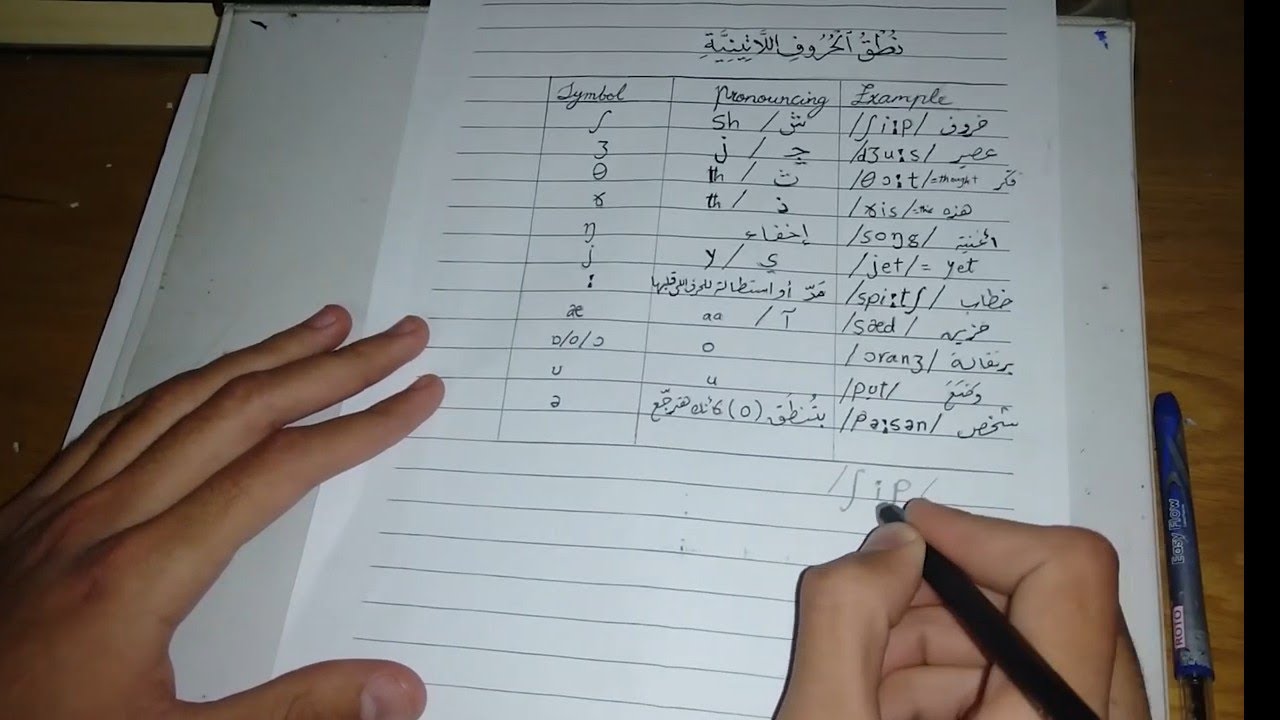 نُطْقُ ٱلْحُرُوفِ اللَّاتِينِيَّةِ
Symbol Pronouncing Example
ʃ sh / ش /ʃi:p/ خروف
ʒ j / ج /dʒu:s/ عصير
θ th / ث /θɔ:t/ = thought فكّر
ɤ th / ذ /ɤis/ = the هذه
ŋ إخفاء /soŋs/ اغنية
j y / ي /jet/ = yet
: مَدّ أو استطالة للحرف اللي قبلها /spi:tʃ/ خطاب
æ aa / آ /sæd/ حزين
ɒ/o/ɔ o /ɔranʒ/ برتقالة
ʊ u /pʊt/ وَضَعَ
ə بتُنطق (o) كأنك هترجّع /pə:sən/ شخص
/ʃip/
Easy Flow
ROTO